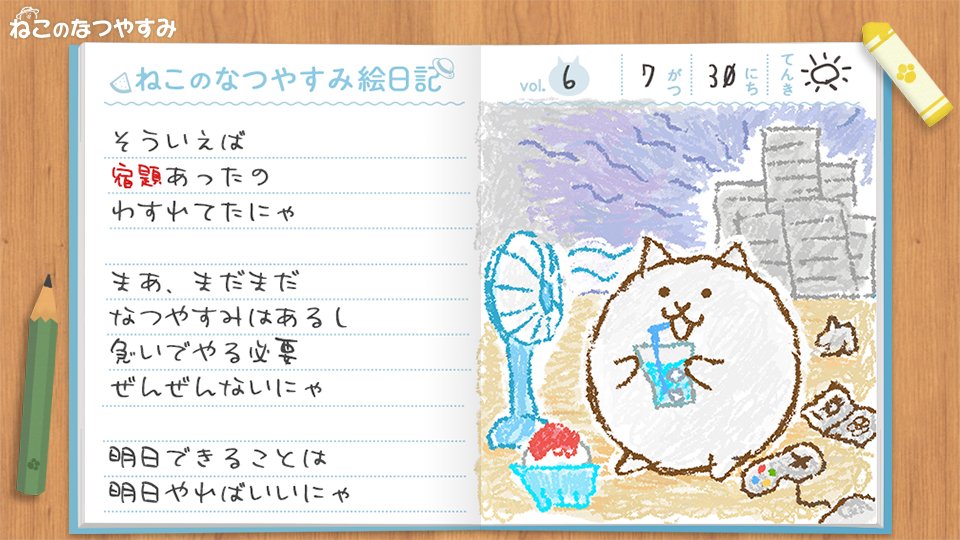 ねこのなつやすみ
ねこのなつやすみ絵日記
vol. 6 7がつ 30にち てんき
そういえば
宿題あったの
わすれてたにゃ
まあ、まだまだ
なつやすみはあるし
急いでやる必要
ぜんぜんないにゃ
明日できることは
明日やればいいにゃ